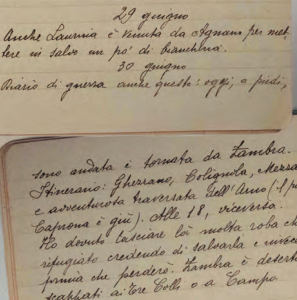 29 giugno
Anche Laurina è venuta da Agnano per met-
tere in salvo un po' di biancheria.
30 giugno
Diario di guerra anche questo: oggi, a piedi,
sono andata e tornata da Zambra.
Itinerario: Ghezzano, Colignola, Mezzana
e avventurosa traversata dell'Arno (il
Caprona è giù). Alle 18, viceversa.
Ho dovuto lasciare là molta roba che
rifugiato credendo di salvarla e invece
finia che perderò. Zambra è deserta
scappati ai Tre Colli o a Campo.